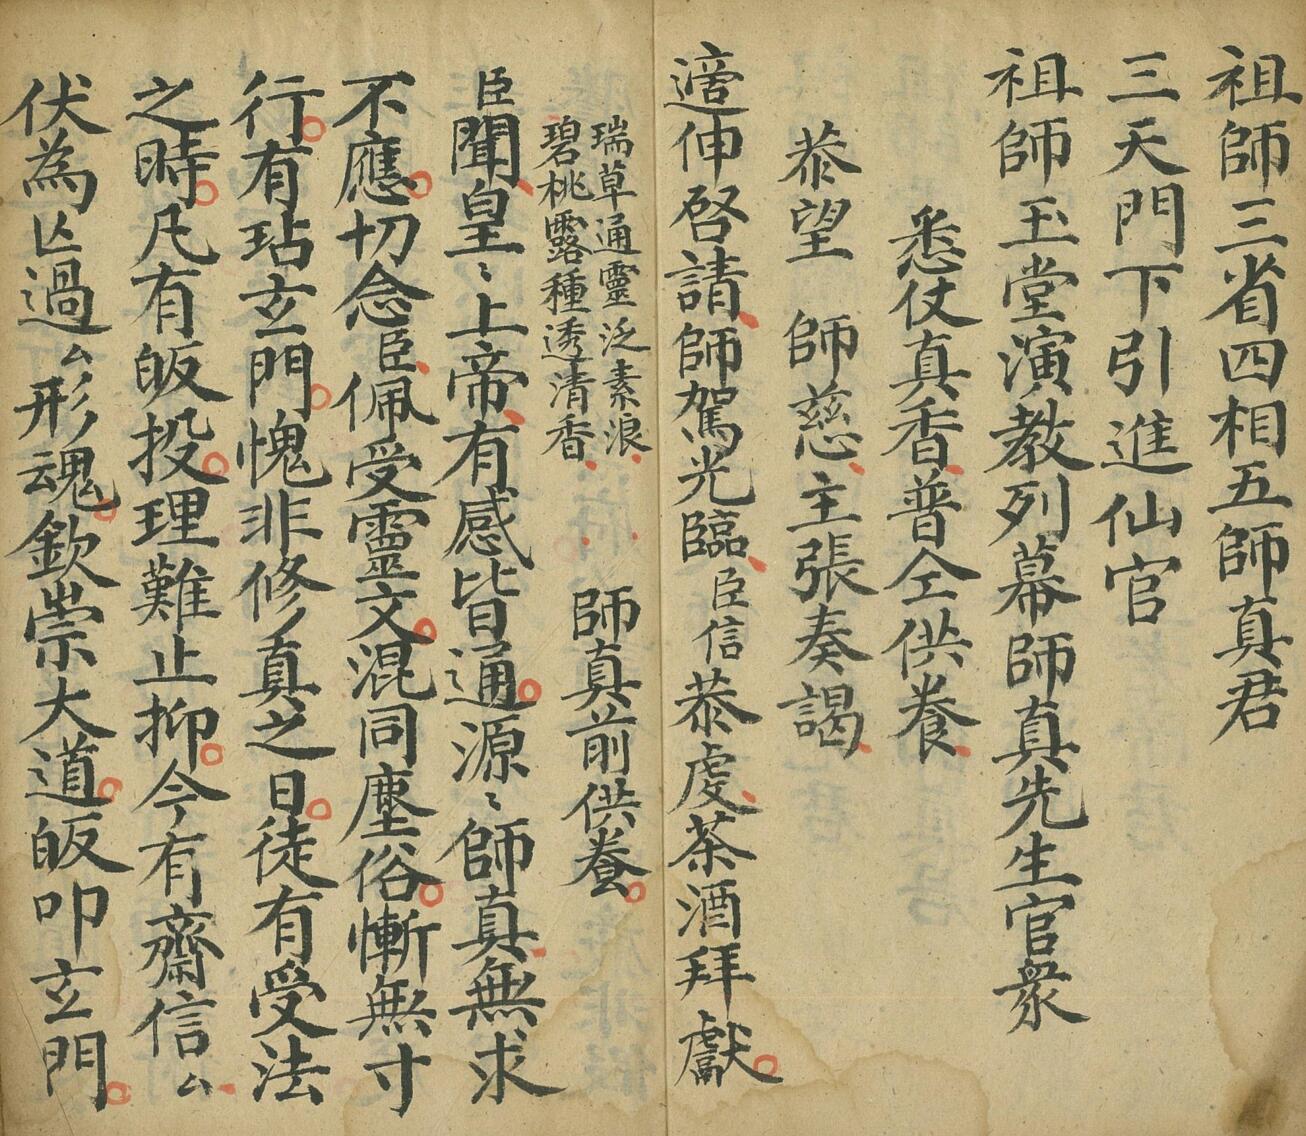 祖師三省四相五師真君
三天門下引進仙官
祖師玉堂演教列幕師真先生官衆
悉仗真香普仝供養
恭望　師慈主張奏謁
適伸啓請師駕光臨臣信恭虔茶酒拜獻
瑞草通靈泛素浪
碧桃露種透清香
師真前供养
臣聞皇〻上帝有感皆通源〻師真無求
不應切念臣佩受靈文混同塵俗慚無寸
行有玷玄門愧非修真之日徒有受法
之時凡有皈投理難止抑今有齋信厶
伏為亾過厶形魂欽崇大道皈叩玄門